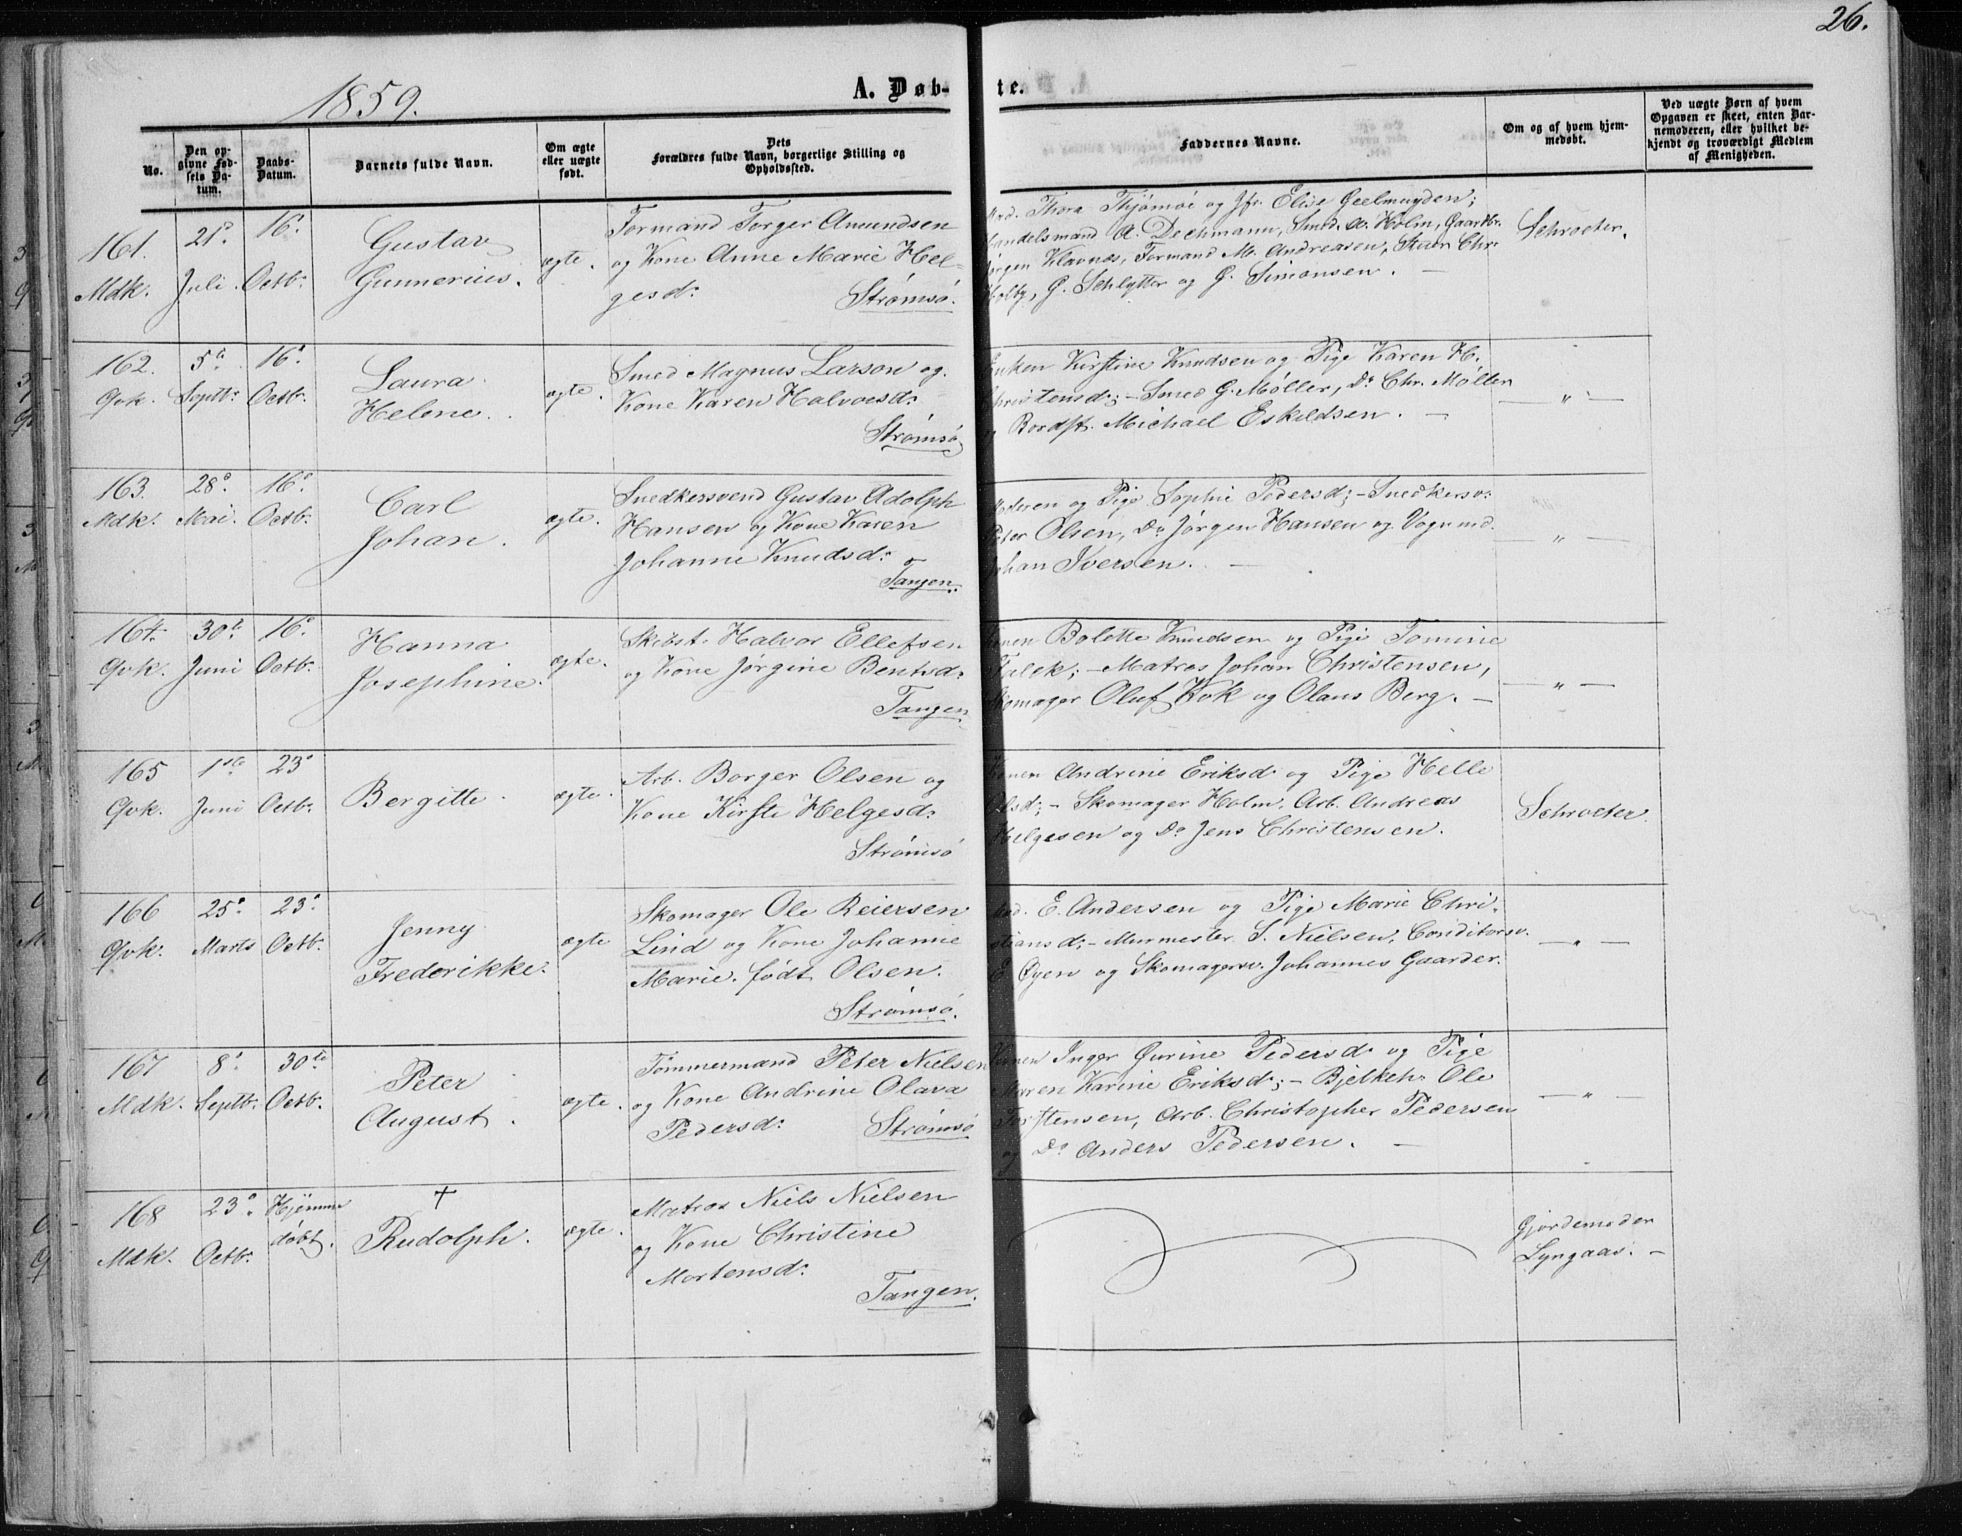 26.
1859.
A. Døb-
te.
No.
Den op-
givne Fød-
sels Da-
tum.
Daabs-
Datum.
Barnets fulde Navn.
Om ægte
eller uægte
født.
Dets
Forældres fulde Navn, borgerlige Stilling og
Opholdssted.
Faddernes Navne.
Om og af hvem hjem-
medøbt.
Ved uægte Børn af hvem
Opgaven er skeet, enten Bar-
nemoderen, eller hvilket be-
kjendt og troværdigt Medlem
af Menigheden.
161.
Mdk.
21de
Juli.
16.
Octb.
Gustav
Gunnerius.
ægte.
Formand Torger Amundsen
og Kone Anne Marie Hel-
gesd:
Strømsö.
Mad. Thora Thjömöe og Jfr. Elise Geelmuyden;
Handelsmand A. Dechmann, Smed. A. Holm, Gaardbr.
Jörgen Klavnes, Formand M. Andreasen, Chr.
Holby, G. Schlytter og G. Simonsen. —
Schroeter.
162.
Qvk.
5te
Septb:
16.
Octb.
Laura
Helene.
ægte.
Smed Magnus Larson og
Kone Karen Halvorsd:
Strømsö
Enken Kirstine Knudsen og Pige Karen H.
Christensd; — Smed G. Møller, Do Chr. Møller
og Bordst. Michael Eskildsen. —
— " —
163.
Mdk.
28.
Mai.
16.
Octb.
Carl
Johan.
ægte.
Snedkersvend Gustav Adolph
Hansen og Kone Karen
Johanne Knudsd:
Tangen.
Moderen og Pige Sophie Pedersd; — Snedkersv:
Peter Olsen, Do Jörgen Hansen og Vognmd.
Johan Iversen. —
— " —
164.
Qvk.
30te
Juni
16.
Octb.
Hanna
Josephine.
ægte.
Skibst. Halvor Ellefsen
og Kone Jørgine Bentsd:
Tangen
Konen Bolette Knudsen og Pige Tomine
Falck; — Matros Johan Christensen,
Skomager Oluf Kok og Olaus Berg. —
— " —
165
Qvk.
1ste
Juni
23.
Octb.
Bergitte.
ægte.
Arb. Borger Olsen og
Kone Kirsti Helgesd:
Strømsö
Konen Andrine Eriksd og Pige Helle
Olsd; — Skomager Holm, Arb. Andreas
Helgesen og Do Jens Christensen.
Schroeter.
166
Qvk.
25.
Marts
23.
Octb.
Jenny
Frederikke.
ægte
Skomager Ole Reiersen
Lind og Kone Johanne
Marie født Olsen.
Strømsö.
Mad. E. Andersen og Pige Marie Chri-
stiansd; — Murmester S. Nielsen, Conditorsv.
E. Øyen og Skomagersv. Johannes Gaarder.
— " —
167
Mdk.
8.
Septb.
30te
Octb.
Peter
August.
ægte.
Tömmermand Peter Nielsen
og Kone Andrine Olava
Pedersd:
Strømsö
Konen Inger Gurine Pedersd og Pige
Maren Karine Eriksd; — Bjelkeh. Ole
Torstensen, Arb. Christopher Pedersen
og Do Anders Pedersen. —
— " —
168
Mdk.
23.
Octb.
Hjemme
döbt.
†
Rudolph.
ægte.
Matros Niels Nielsen
og Kone Christine
Mortensd:
Tangen.
Gjordemoder
Lyngaas. —